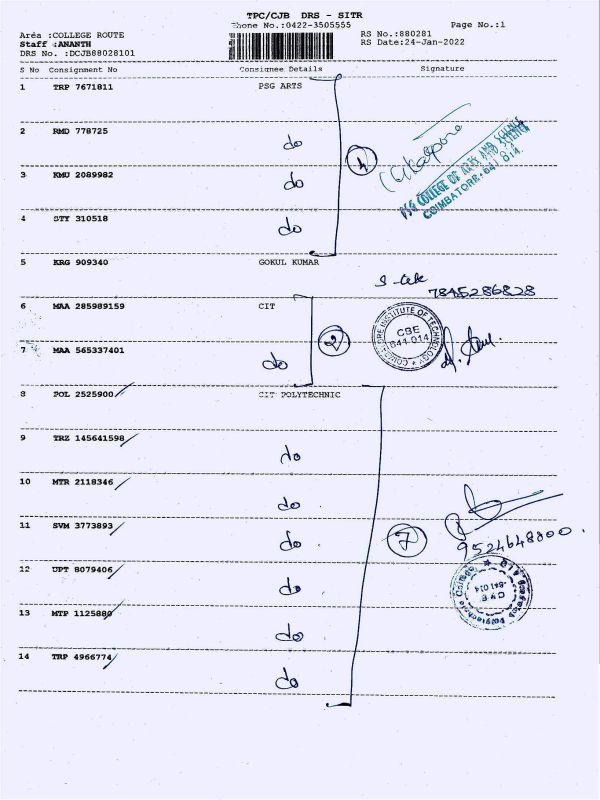 TPC/CJB DRS - SITR
Phone No.:0422-3505555 Page No.:1
Area :COLLEGE ROUTE RS No.:880281
Staff :ANANTH RS Date:24-Jan-2022
DRS No. :DCJB88028101
S No Consignment No Consignee Details Signature
1 TRP 7671811 PSG ARTS
2 RMD 778725 do
3 KMU 2089982 do
4
PSG COLLEGE OF ARTS AND SCIENCE
COIMBATORE-641 014.
4 STY 310518 do
5 KRG 909340 GOKUL KUMAR
7845286828
6 MAA 285989159 CIT
2
COIMBATORE INSTITUTE OF TECHNOLOGY
CBE
641 014
7 MAA 565337401 do
8 POL 2525900 CIT POLYTECHNIC
9 TRZ 145641598 do
10 MTR 2118346 do
11 SVM 3773893 do
7
9524648800.
12 UPT 8079406 do
Polytechnic College
CBE
641 014
13 MTP 1125880 do
14 TRP 4966774 do